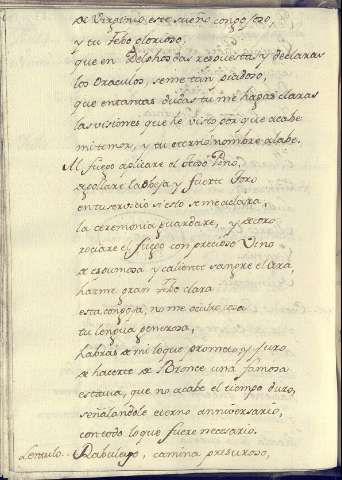 de Virginio, este sueño congojoso,
y tu Febo glorioso,
que en Delphos das respuesta, y declaras
los Oraculos, seme tan piadoso,
que en tantas dudas tu me hagas claras
las visiones que he visto por que acabe
mi temor, y tu eterno nombre alabe.
Al fuego aplicare el
la Obeja y fuerte Toro
en tu servicio si esto se me aclara,
la ceremonia guardare, y decoro
rociare el fuego con precioso Vino
de espumosa y caliente sangre el Ara
hazme gran Febo clara
esta congoja, no me oculte cosa
tu lengua generosa,
habrás de mi lo que prometo y juro
de hacerte de Bronce una famosa
estatua, que no acabe el tiempo duro,
señalandole eterno anniversario,
con todo lo que fuere necesario.
camina presuroso,